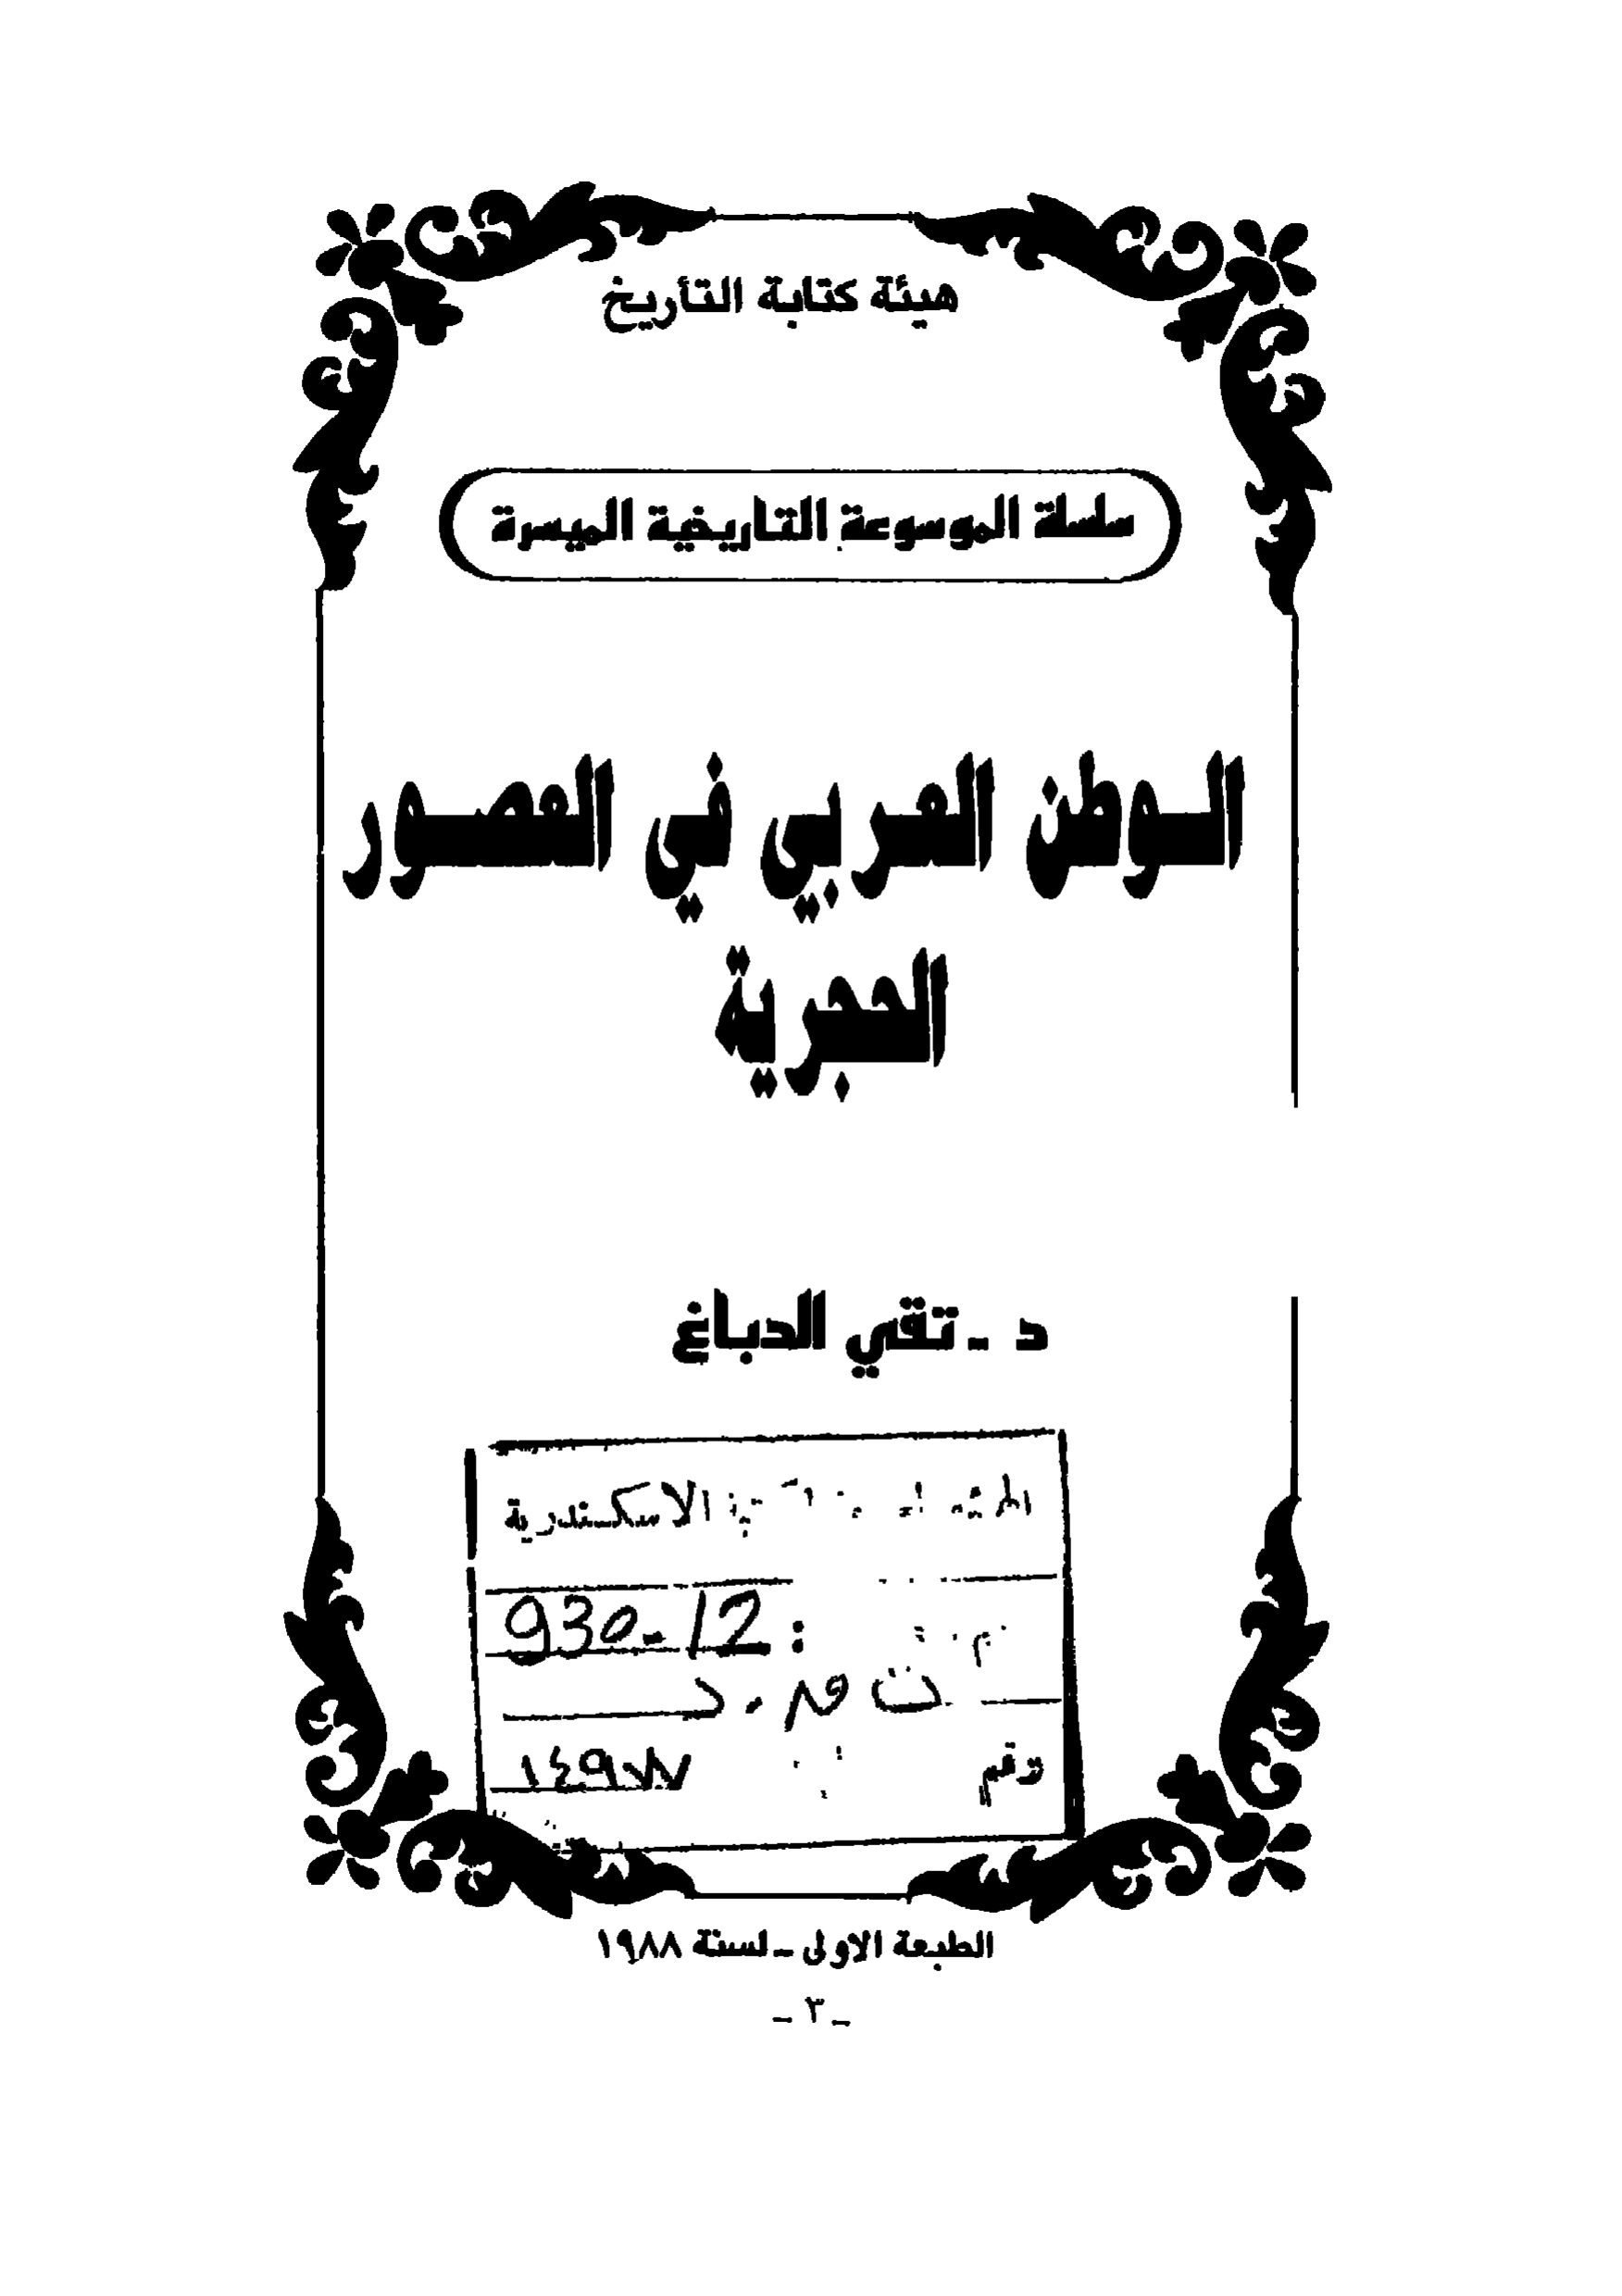 هيئة كتابة التأريخ
سلسلة الموسوعة التاريخية الميسرة
الـوطن العربي في العصـور
الحجرية
د ـ تقي الدباغ
الاسكندرية
930-12 :
رقم
الطبعة الاولى ـ لسنة ١٩٨٨
ـ ٣ ـ